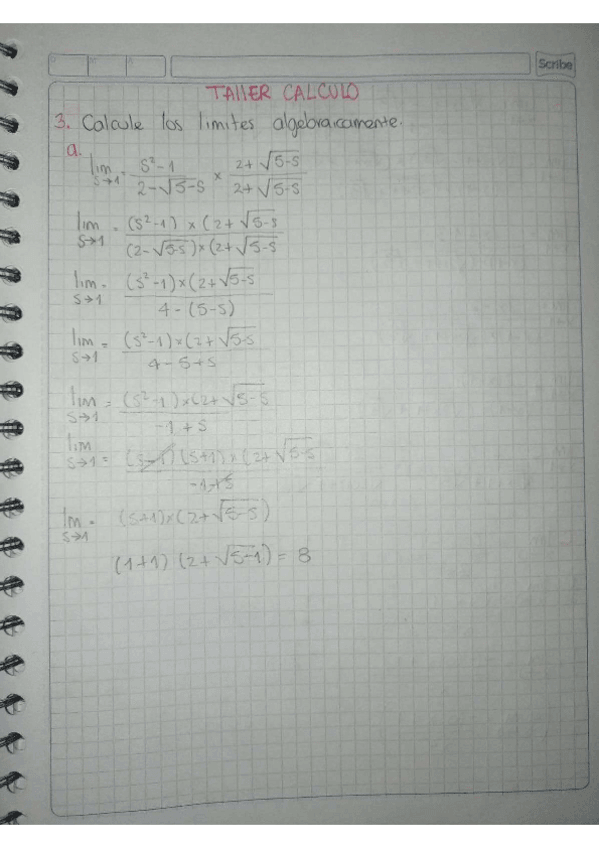 Scribe
TALLER CALCULO
3. Calcule los limites algebraicamente.
a.
lim s→1 = s²-1 / 2-√5-s × 2+√5-s / 2+√5-s
lim s→1 = (s²-1) × (2+√5-s / (2-√5-s) × (2+√5-s
lim s→1 = (s²-1) × (2+√5-s / 4-(5-s)
lim s→1 = (s²-1) × (2+√5-s / 4-5+s
lim s→1 = (s²-1) × (2+√5-s / -1+s
lim s→1 = (s-1) (s+1) × (2+√5-s / -1+s
lim s→1 = (s+1) × (2+√5-s)
(1+1) (2+√5-1) = 8